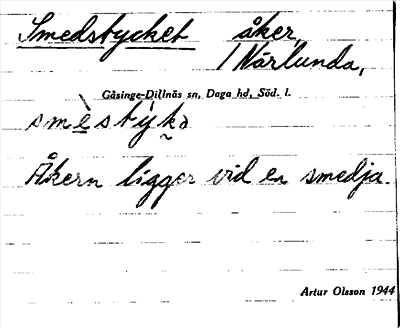 Smedstycket åker,
/ Närlunda,
Gåsinge-Dillnäs sn, Daga hd, Söd. l.
smèstýkə
Åkern ligger vid en smedja.
Artur Olsson 1944